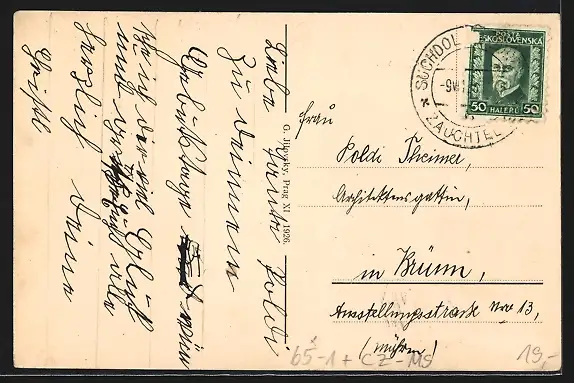 Liebe Tante Poldi
Zu deinem
Geburtstage wün
sche ich dir viel Glück
und
herzlich deine
Christl
G. Jilovsky, Prag XI 1926.
SUCHDOL
ZAUCHTEL
POŠTA
ČESKOSLOVENSKÁ
50 HALÉŘŮ 50
Frau
Poldi Theimer,
Architektensgattin,
in Brünn,
Ausstellungsstrasse Nro 13,
(Mähren)
65-1 + CZ-MS
19,-